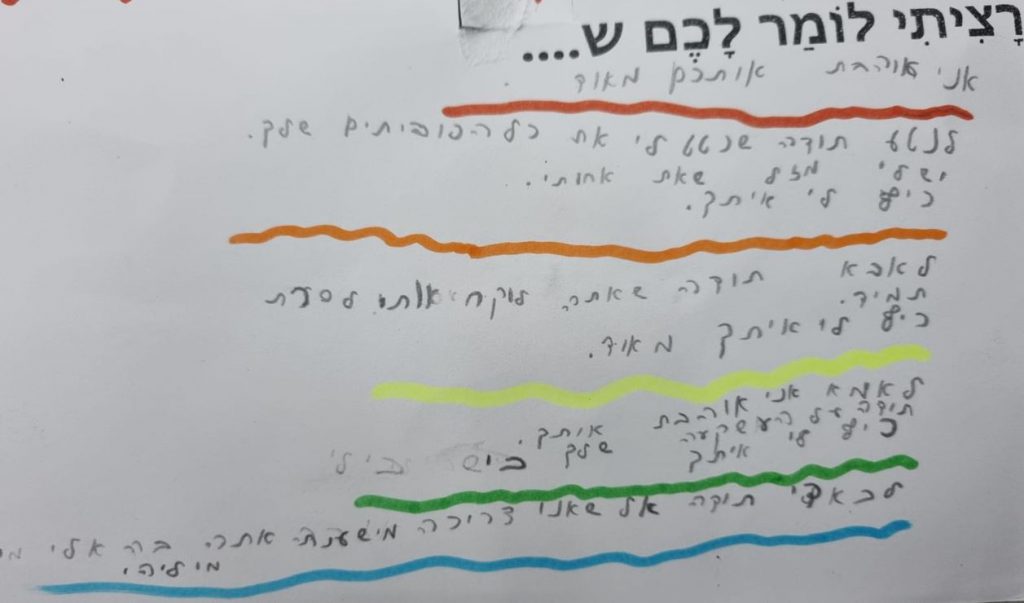 רָצִיתִי לוֹמַר לָכֶם ש....
אני אוהבת אותכם מאוד
לנטע תודה שנטט לי את כל הפוביתים שלך.
יש לי מזל שאת אחותי.
כיף לי איתך.
לאבא תודה שאתה לוקח אותי לסעת
תמיד.
כיף לי איתך מאוד.
לאמא אני אוהבת אותך.
תודה על העשקעה שלך
כיף לי איתך
תודה אל שאני צריכה מישענת אתה בה אלי